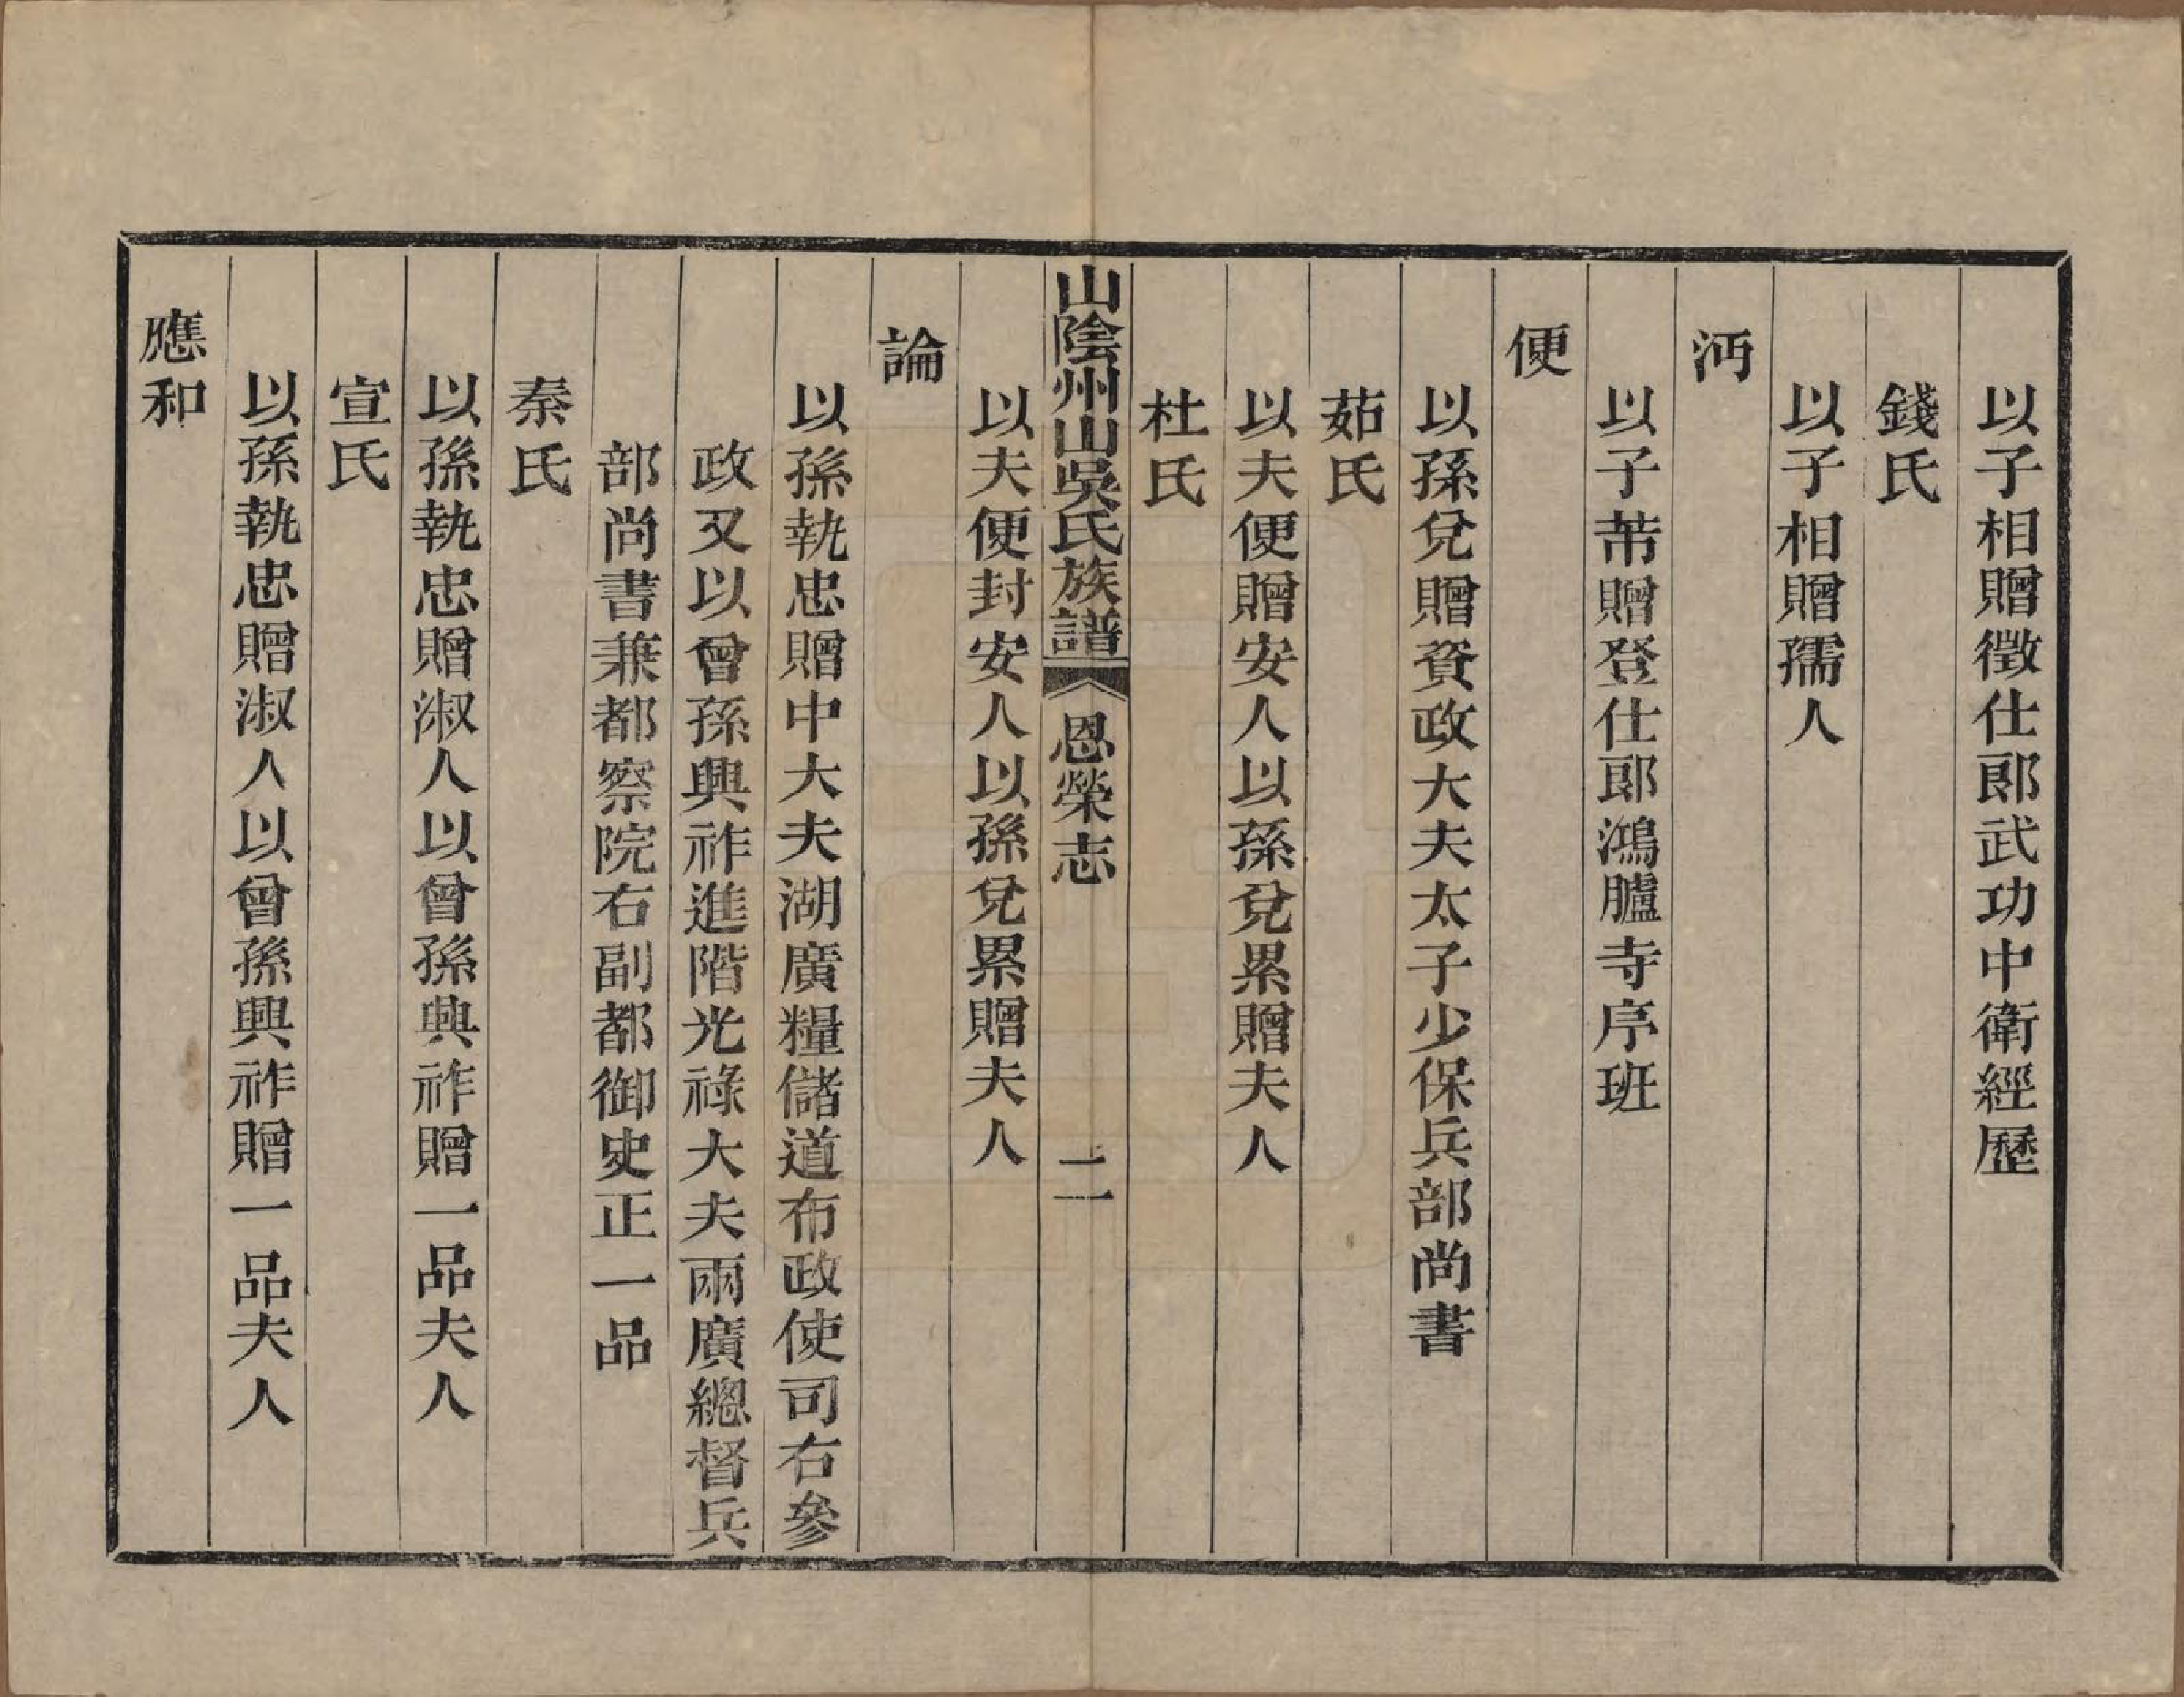 以子相贈徵仕郎武功中衛經歷
錢氏
以子相贈孺人
沔
以子芾贈登仕郎鴻臚寺序班
便
以孫兌贈資政大夫太子少保兵部尚書
茹氏
以夫便贈安人以孫兌累贈夫人
杜氏
以夫便封安人以孫兌累贈夫人
山陰州山吳氏族譜 恩榮志 二
論
以孫執忠贈中大夫湖廣糧儲道布政使司右參
政又以曾孫興祚進階光祿大夫兩廣總督兵
部尚書兼都察院右副都御史正一品
秦氏
以孫執忠贈淑人以曾孫興祚贈一品夫人
宣氏
以孫執忠贈淑人以曾孫興祚贈一品夫人
應和